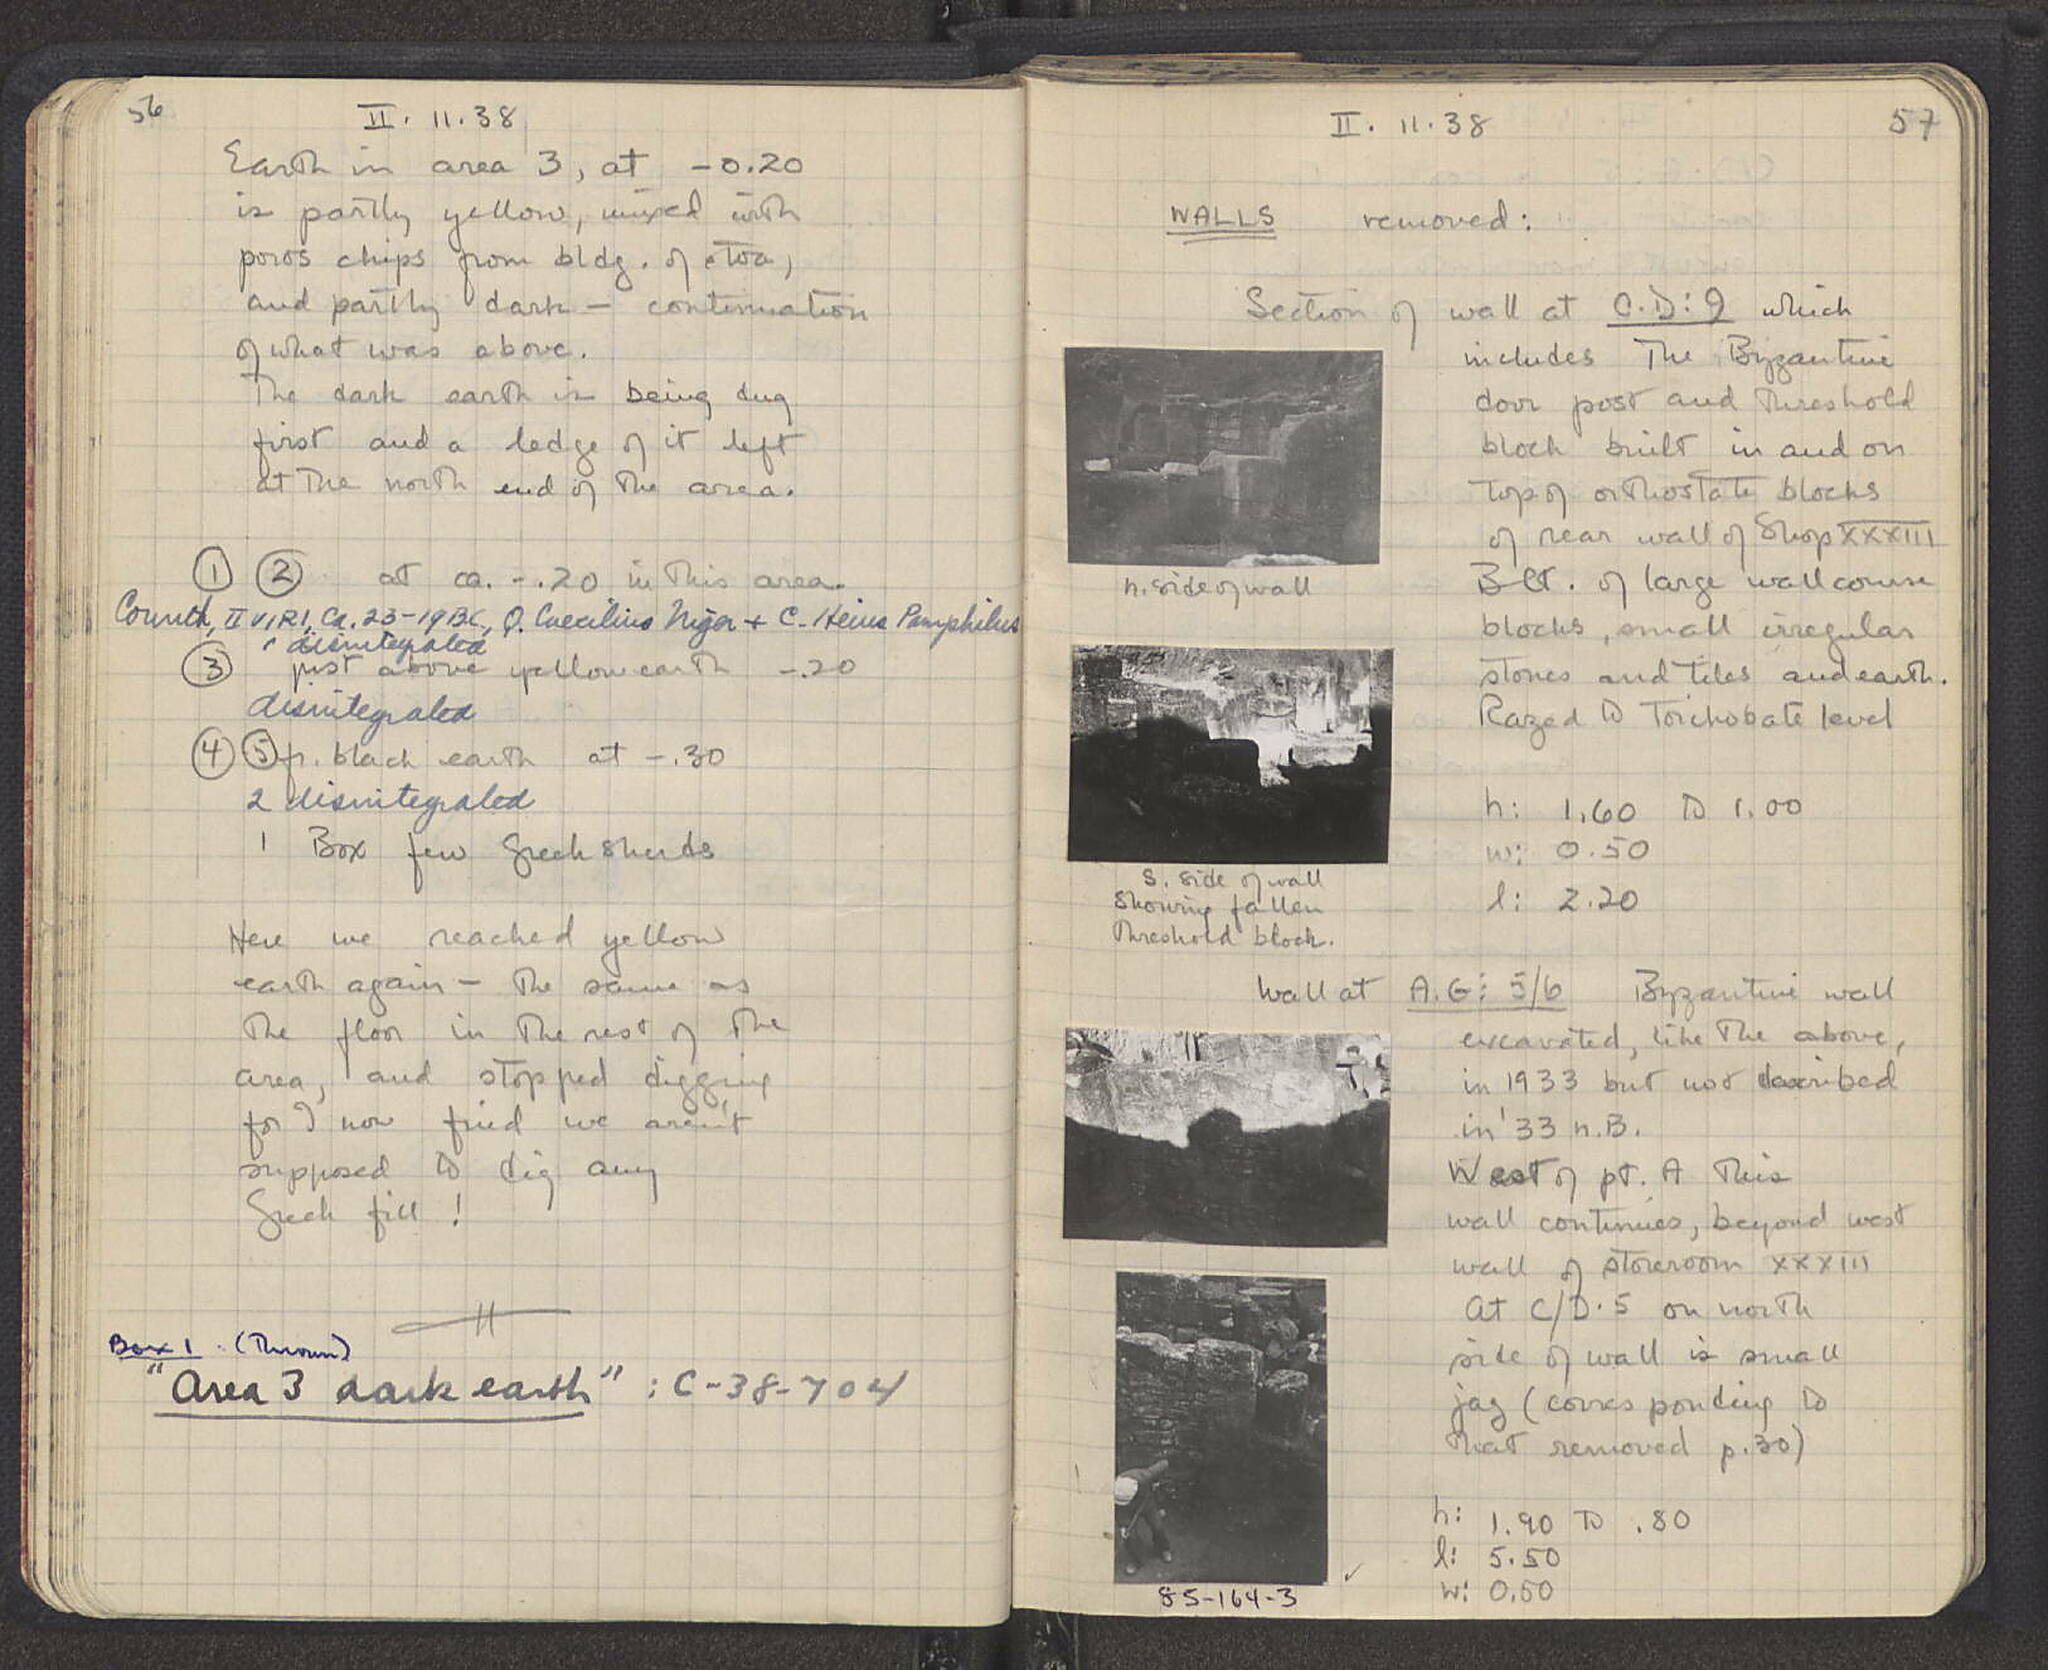 56
II. 11.38
Earth in area 3, at -0.20
is partly yellow, mixed with
poros chips from bldg. of stoa,
and partly dark — continuation
of what was above.
The dark earth is being dug
first and a ledge of it left
at the north end of the area.
① ② at ca. -.20 in this area.
Corinth, II VIRI, Ca. 23-19 BC, Q. Caecilius Niger + C. Heius Pamphilus
1 disintegrated
③ just above yellow earth -.20
disintegrated
④ ⑤ fr. black earth at -.30
2 disintegrated
1 Box few Greek sherds
Here we reached yellow
earth again — the same as
the floor in the rest of the
area, and stopped digging
for I now find we aren't
supposed to dig any
Greek fill!
Box 1 (Thrown)
"Area 3 dark earth" : C-38-704
II. 11.38
57
WALLS removed:
Section of wall at C.D:9 which
includes the Byzantine
door post and threshold
block built in and on
top of orthostate blocks
of rear wall of Shop XXXIII
Blt. of large wall course
blocks, small irregular
stones and tiles and earth.
Razed to Toichobate level
n. side of wall
h: 1.60 to 1.00
w: 0.50
l: 2.20
S. side of wall
showing fallen
threshold block.
Wall at A.G: 5/6 Byzantine wall
excavated, like the above,
in 1933 but not described
in '33 n.B.
West of pt. A this
wall continues, beyond west
wall of storeroom XXXIII
At C/D.5 on north
side of wall is small
jag (corresponding to
that removed p.30)
h: 1.90 to .80
l: 5.50
w: 0.50
85-164-3